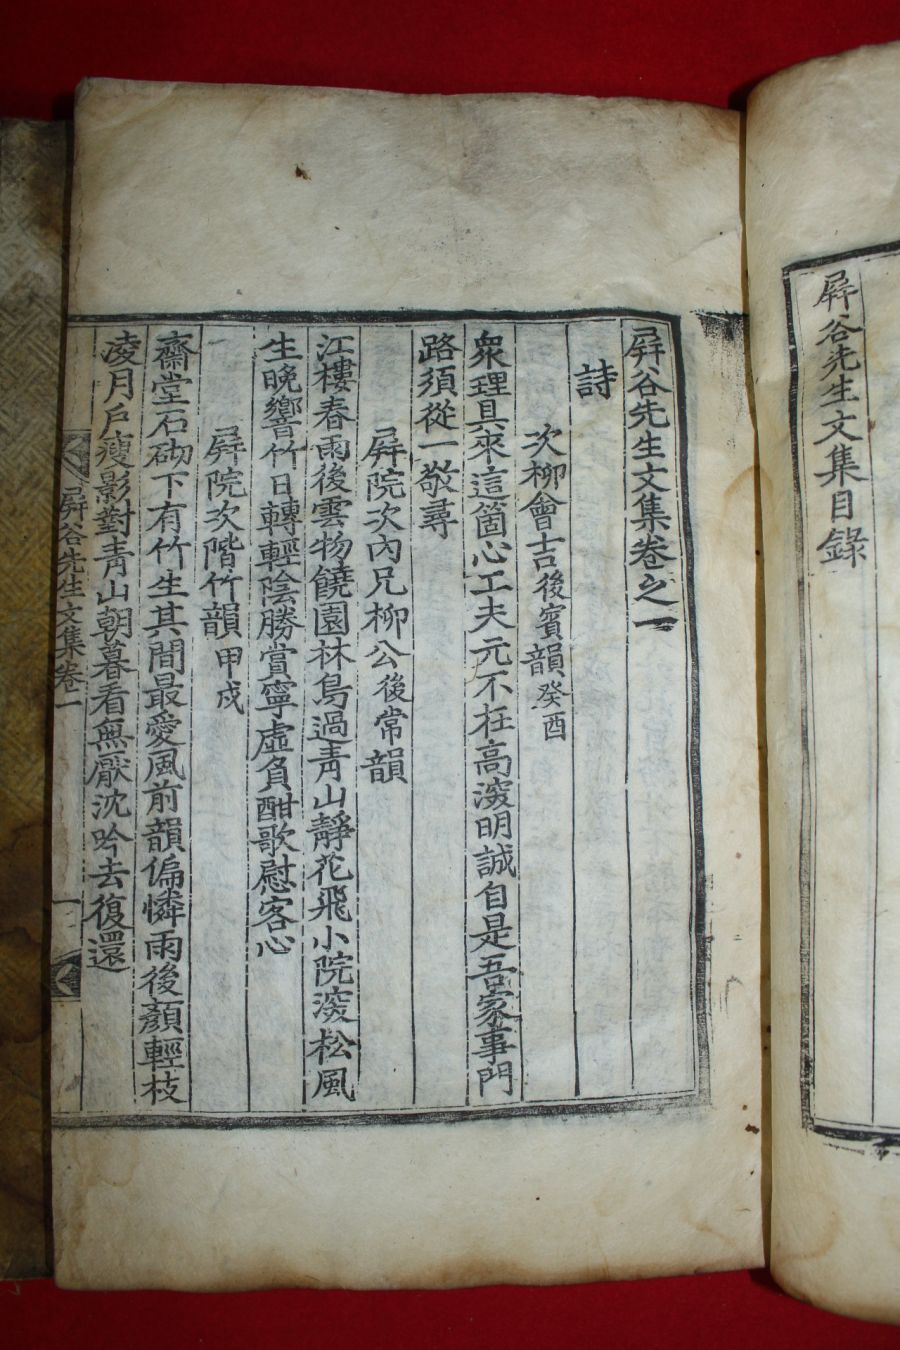 屛谷先生文集目錄
屛谷先生文集卷之一
詩
次柳會吉後賓韻癸酉
衆理具來這箇心工夫元不在高深明誠自是吾家事門
路須從一敬尋
屛院次內兄柳公後常韻
江樓春雨後雲物饒園林鳥過靑山靜花飛小院深松風
生晩響竹日轉輕陰勝賞寧虛負酣歌慰客心
屛院次階竹韻甲戌
齋堂石砌下有竹生其間最愛風前韻偏憐雨後顏輕枝
凌月戶瘦影對靑山朝暮看無厭沈吟去復還
屛谷先生文集卷一
一